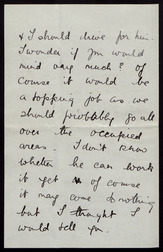 & I should drive for him.
I wonder if you would
mind very much? of
course it would be
a topping job as we
should probably go all
over the occupied
areas. I don't know
whether he can work
it yet & of course
it may come to nothing
but I thought I
would tell you.